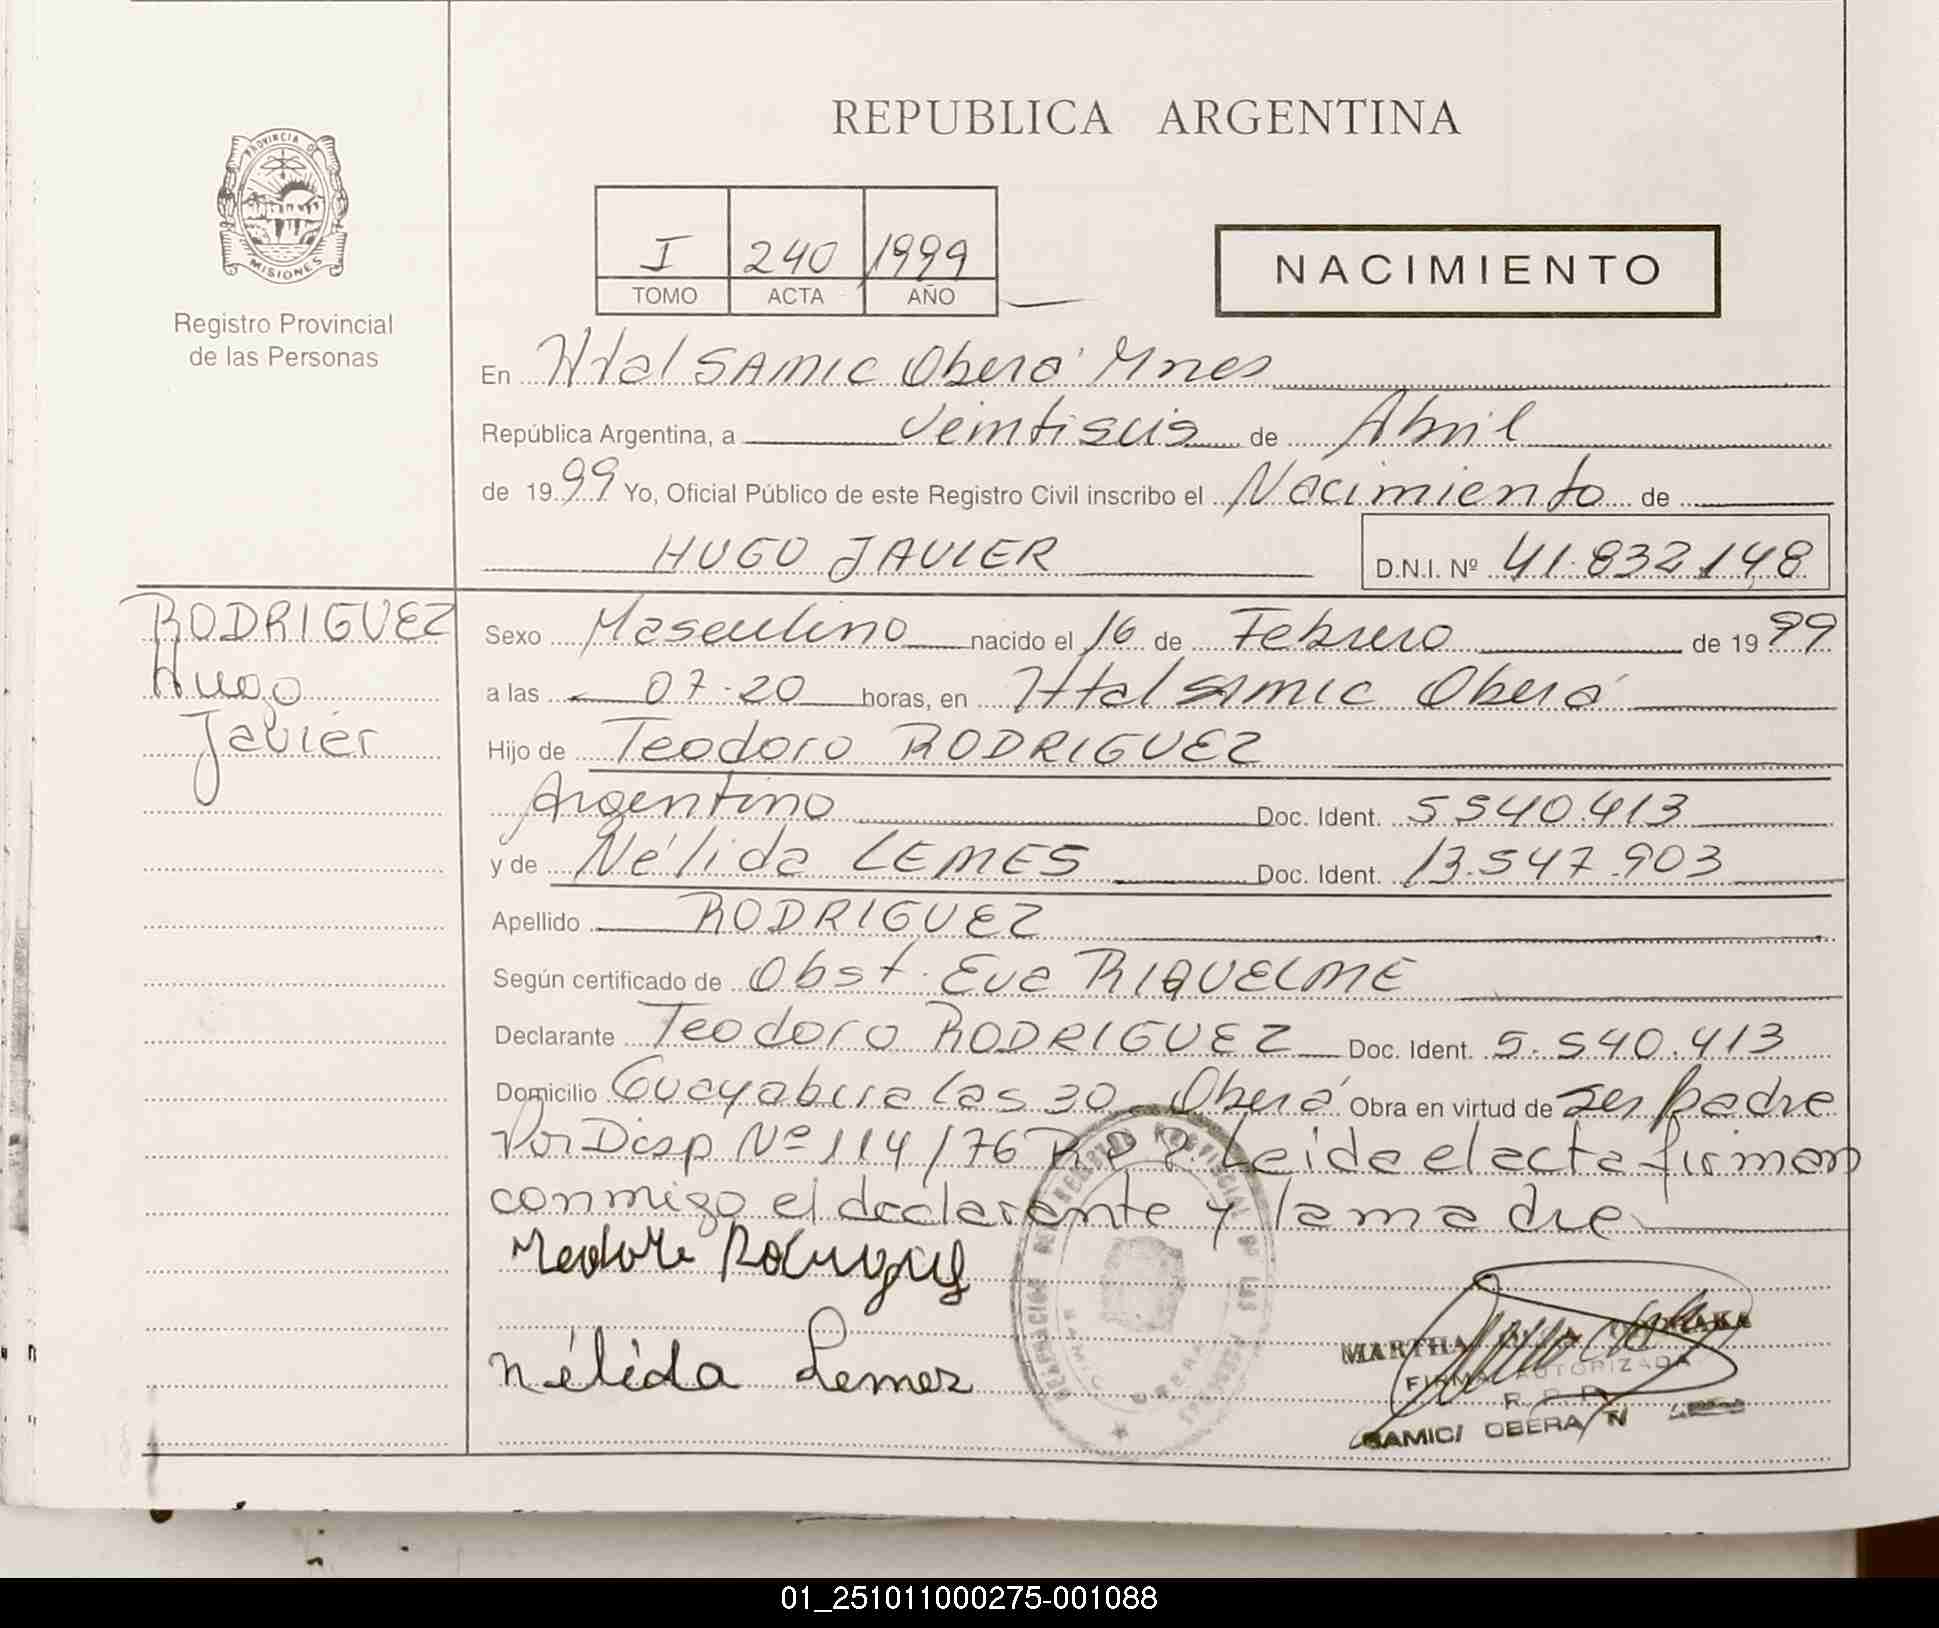 REPUBLICA ARGENTINA
PROVINCIA DE
MISIONES
Registro Provincial
de las Personas
I 240 1999
TOMO ACTA AÑO
NACIMIENTO
En Htal SAMIC Oberá Mnes
República Argentina, a veintiseis de Abril
de 1999 Yo, Oficial Público de este Registro Civil inscribo el Nacimiento de
HUGO JAVIER D.N.I. Nº 41.832.148
RODRIGUEZ
Hugo
Javier
Sexo Masculino nacido el 16 de Febrero de 1999
a las 07.20 horas, en Htal SAMIC Oberá
Hijo de Teodoro RODRIGUEZ
Argentino Doc. Ident. 5.540.413
y de Nélida LEMES Doc. Ident. 13.547.903
Apellido RODRIGUEZ
Según certificado de Obst. Eva RIQUELME
Declarante Teodoro RODRIGUEZ Doc. Ident. 5.540.413
Domicilio Guayabera las 30 Oberá Obra en virtud de ser padre
Por Disp Nº 114/76 R.P.P. Leida el acta firman
conmigo el declarante y la madre
Nélida Lemes
MARTHA
FIRMA AUTORIZADA
R. P. P.
SAMIC/ OBERA
01_251011000275-001088